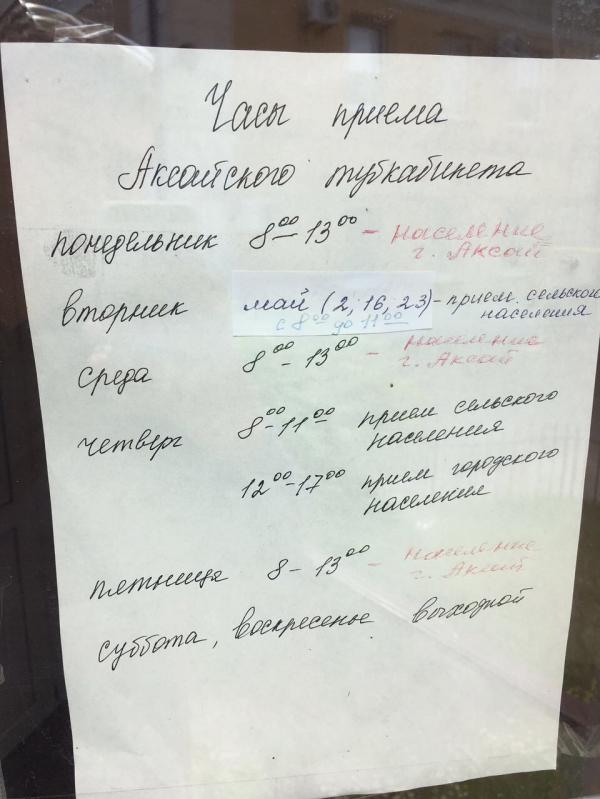 Часы приема
Аксайского тубкабинета
понедельник 8⁰⁰ – 13⁰⁰ – население
г. Аксай
вторник май (2, 16, 23) – прием сельского
населения
с 8⁰⁰ до 11⁰⁰
среда 8⁰⁰ – 13⁰⁰ – население
г. Аксай
четверг 8⁰⁰ – 11⁰⁰ прием сельского
населения
12⁰⁰ – 17⁰⁰ прием городского
населения
пятница 8 – 13⁰⁰ – население
г. Аксай
суббота, воскресенье выходной